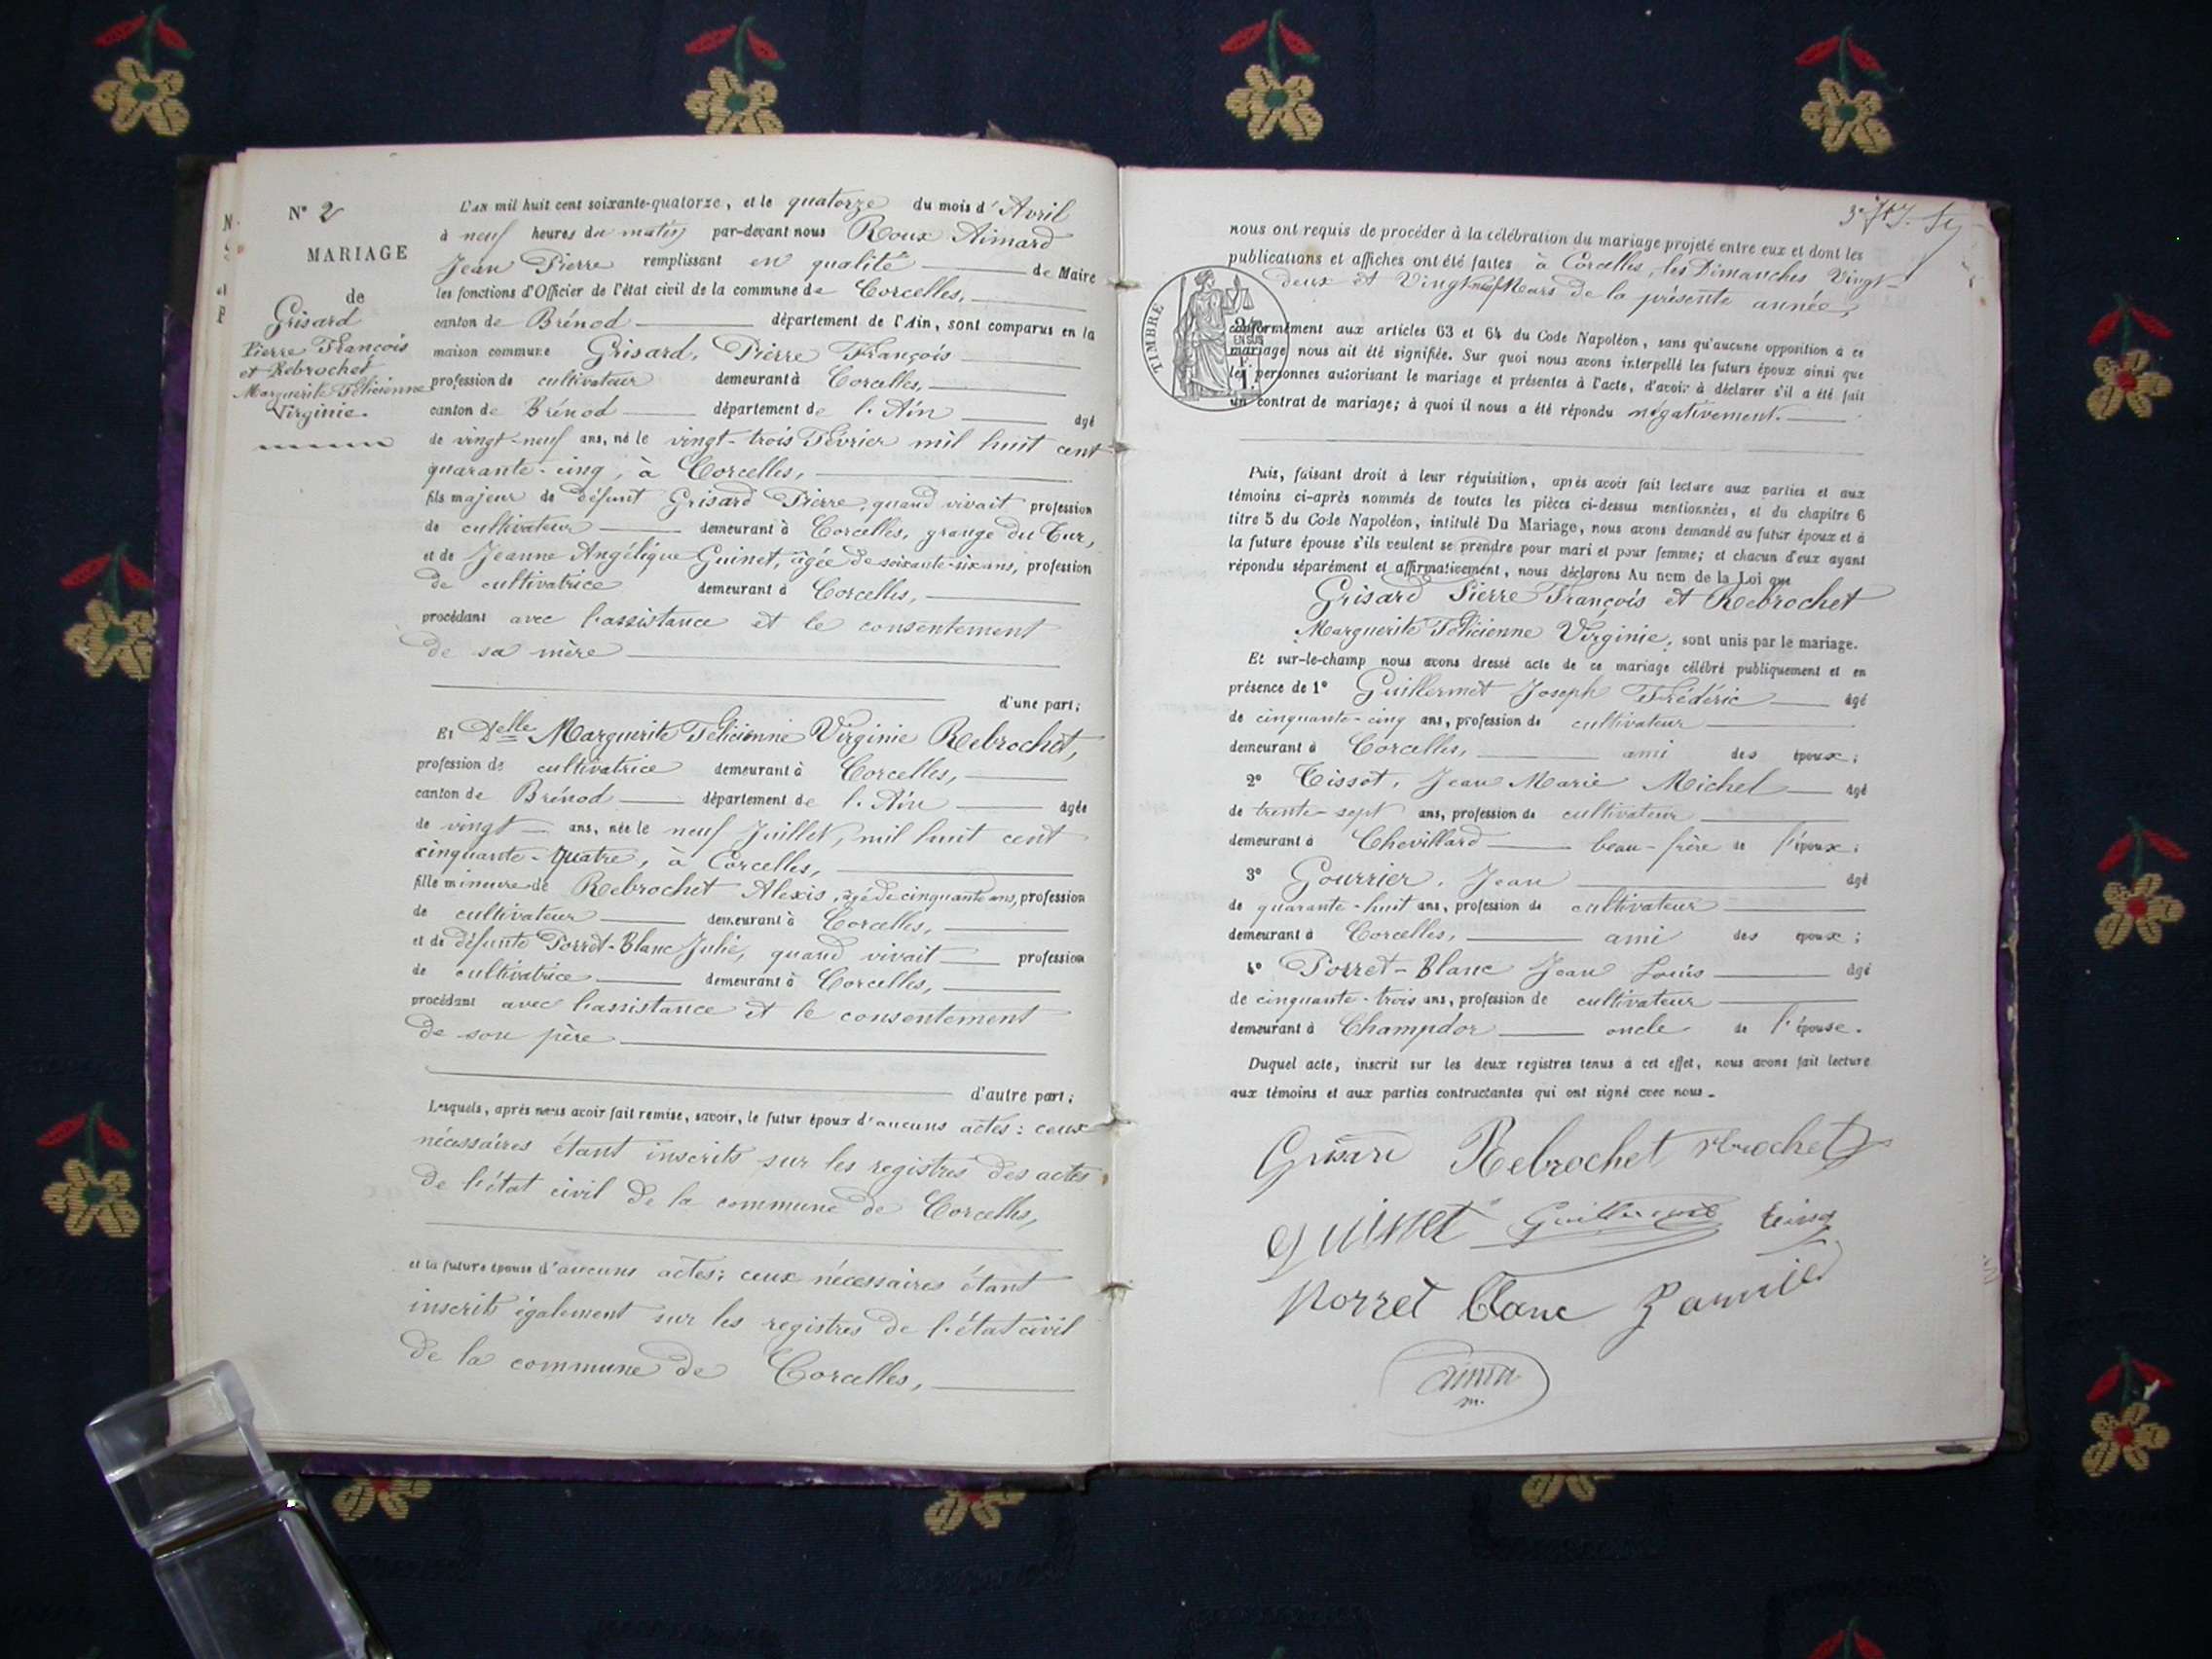 N° 2
MARIAGE
de
Grisard
Pierre François
et Rebrochet
Marguerite Félicienne
Virginie.
L'an mil huit cent soixante-quatorze, et le quatorze du mois d'Avril
à neuf heures du matin par-devant nous Roux Aimard
Jean Pierre remplissant en qualité de Maire
les fonctions d'Officier de l'état civil de la commune de Corcelles,
canton de Brénod département de l'Ain, sont comparus en la
maison commune Grisard, Pierre François
profession de cultivateur demeurant à Corcelles,
canton de Brénod département de l'Ain âgé
de vingt-neuf ans, né le vingt-trois Février mil huit cent
quarante-cinq, à Corcelles,
fils majeur de défunt Grisard Pierre, quand vivait profession
de cultivateur demeurant à Corcelles, grange du Tur,
et de Jeanne Angélique Guinet, âgée de soixante-six ans, profession
de cultivatrice demeurant à Corcelles,
procédant avec l'assistance et le consentement
de sa mère
d'une part;
Et Delle Marguerite Félicienne Virginie Rebrochet,
profession de cultivatrice demeurant à Corcelles,
canton de Brénod département de l'Ain âgée
de vingt ans, née le neuf Juillet, mil huit cent
cinquante-quatre, à Corcelles,
fille mineure de Rebrochet Alexis, âgé de cinquante ans, profession
de cultivateur demeurant à Corcelles,
et de défunte Porret-Blanc Julie, quand vivait profession
de cultivatrice demeurant à Corcelles,
procédant avec l'assistance et le consentement
de son père
d'autre part;
Lesquels, après nous avoir fait remise, savoir, le futur époux d'aucuns actes: ceux
nécessaires étant inscrits sur les registres des actes
de l'état civil de la commune de Corcelles,
et la future épouse d'aucuns actes; ceux nécessaires étant
inscrits également sur les registres de l'état civil
de la commune de Corcelles,
nous ont requis de procéder à la célébration du mariage projeté entre eux et dont les
publications et affiches ont été faites à Corcelles, les Dimanches Vingt-
deux et Vingt neuf Mars de la présente année,
TIMBRE
EN SUS
conformément aux articles 63 et 64 du Code Napoléon, sans qu'aucune opposition à ce
mariage nous ait été signifiée. Sur quoi nous avons interpellé les futurs époux ainsi que
les personnes autorisant le mariage et présentes à l'acte, d'avoir à déclarer s'il a été fait
un contrat de mariage; à quoi il nous a été répondu négativement.
Puis, faisant droit à leur réquisition, après avoir fait lecture aux parties et aux
témoins ci-après nommés de toutes les pièces ci-dessus mentionnées, et du chapitre 6
titre 5 du Code Napoléon, intitulé Du Mariage, nous avons demandé au futur époux et à
la future épouse s'ils veulent se prendre pour mari et pour femme; et chacun d'eux ayant
répondu séparément et affirmativement, nous déclarons Au nom de la Loi que
Grisard Pierre François et Rebrochet
Marguerite Félicienne Virginie, sont unis par le mariage.
Et sur-le-champ nous avons dressé acte de ce mariage célébré publiquement et en
présence de 1° Guillermet Joseph Frédéric âgé
de cinquante-cinq ans, profession de cultivateur
demeurant à Corcelles, ami des époux;
2° Tissot, Jean Marie Michel âgé
de trente-sept ans, profession de cultivateur
demeurant à Chevillard beau-frère de l'époux;
3° Gourrier, Jean âgé
de quarante-huit ans, profession de cultivateur
demeurant à Corcelles, ami des époux;
4° Porret-Blanc Jean Louis âgé
de cinquante-trois ans, profession de cultivateur
demeurant à Champdor oncle de l'épouse.
Duquel acte, inscrit sur les deux registres tenus à cet effet, nous avons fait lecture
aux témoins et aux parties contractantes qui ont signé avec nous.
Grisard Rebrochet rebrochet
guinet Guillermet
porret Blanc